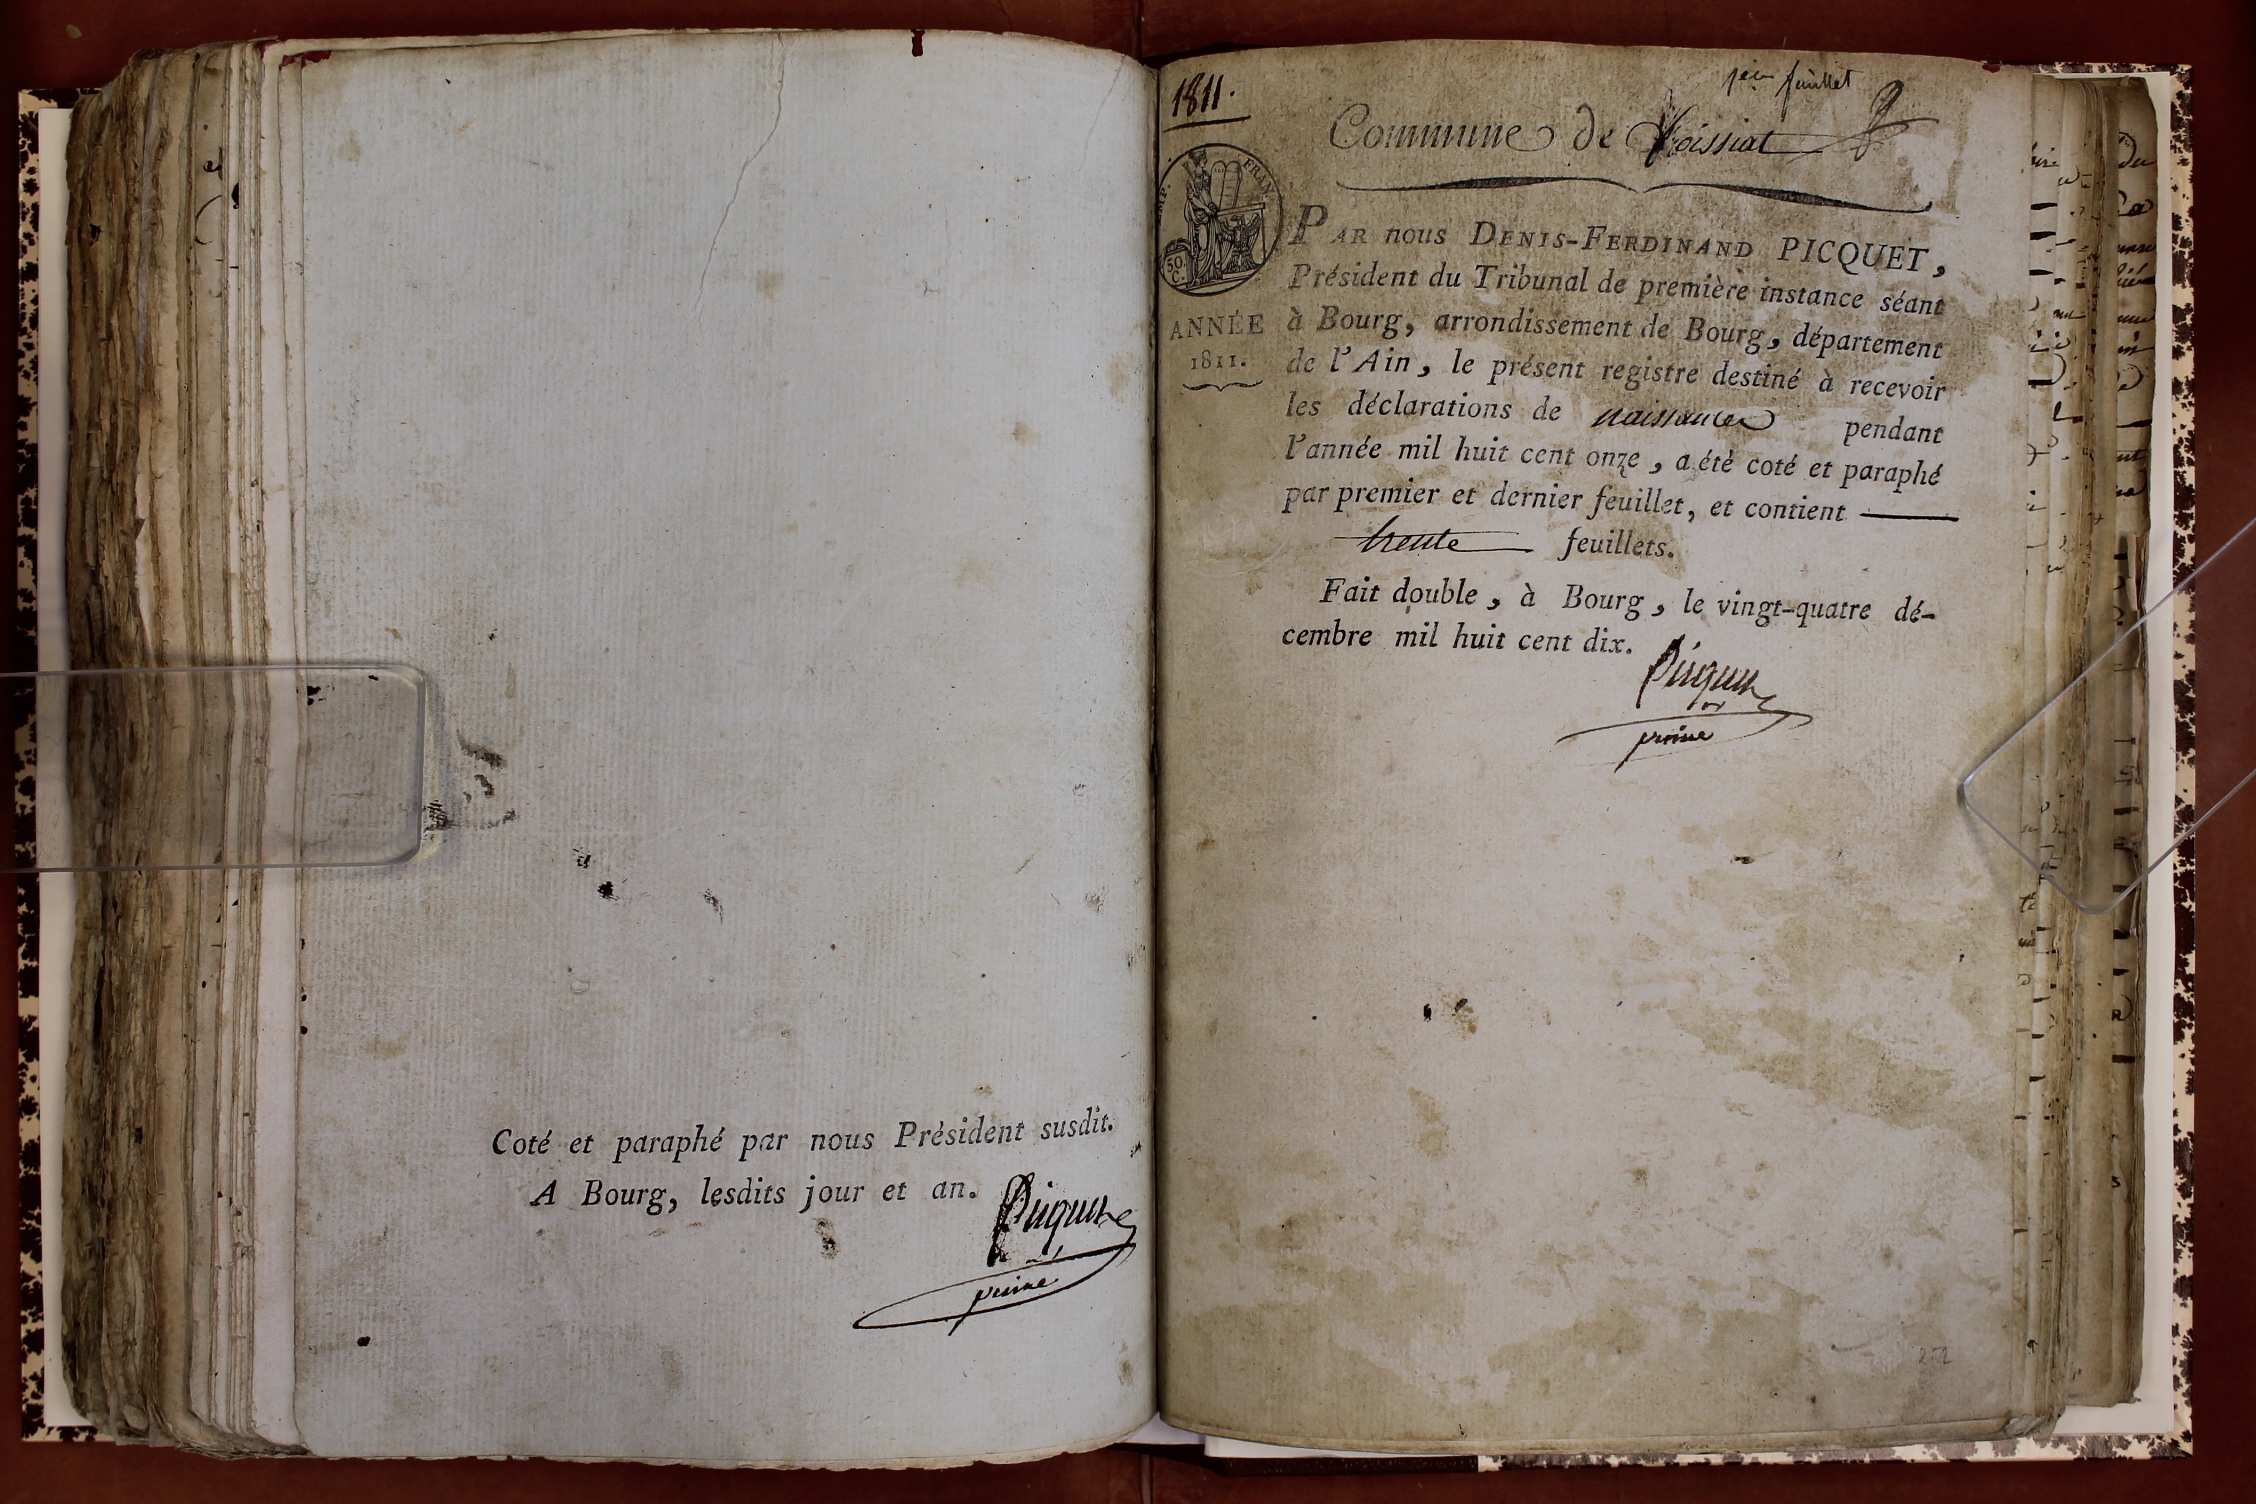 Coté et paraphé par nous Président susdit.
A Bourg, lesdits jour et an.
Picquet
1811.
1er feuillet
Commune de Foissiat
FRAN.
50
C.
ANNÉE
1811.
PAR nous DENIS-FERDINAND PICQUET,
Président du Tribunal de première instance séant
à Bourg, arrondissement de Bourg, département
de l'Ain, le présent registre destiné à recevoir
les déclarations de naissances pendant
l'année mil huit cent onze, a été coté et paraphé
par premier et dernier feuillet, et contient
trente feuillets.
Fait double, à Bourg, le vingt-quatre dé-
cembre mil huit cent dix.
Picquet